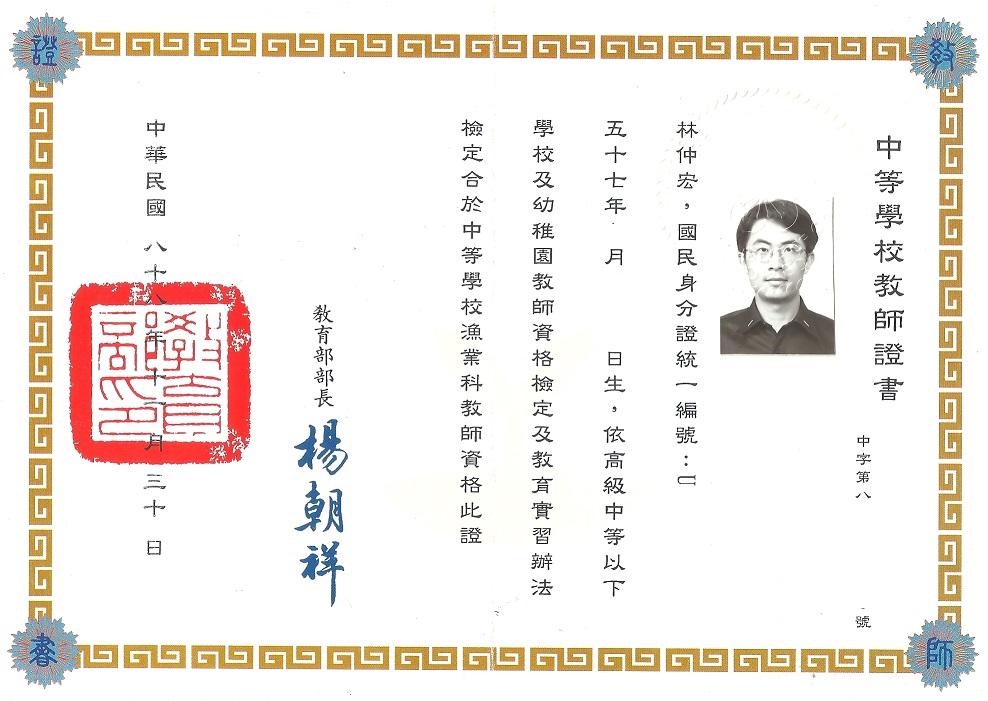 中等學校教師證書
中字第八 號
林仲宏，國民身分證統一編號：
五十七年 月 日生，依高級中等以下
學校及幼稚園教師資格檢定及教育實習辦法
檢定合於中等學校漁業科教師資格此證
教育部部長 楊朝祥
中華民國 八十八年 十一月 三十 日
教育部印
教
師
證
書